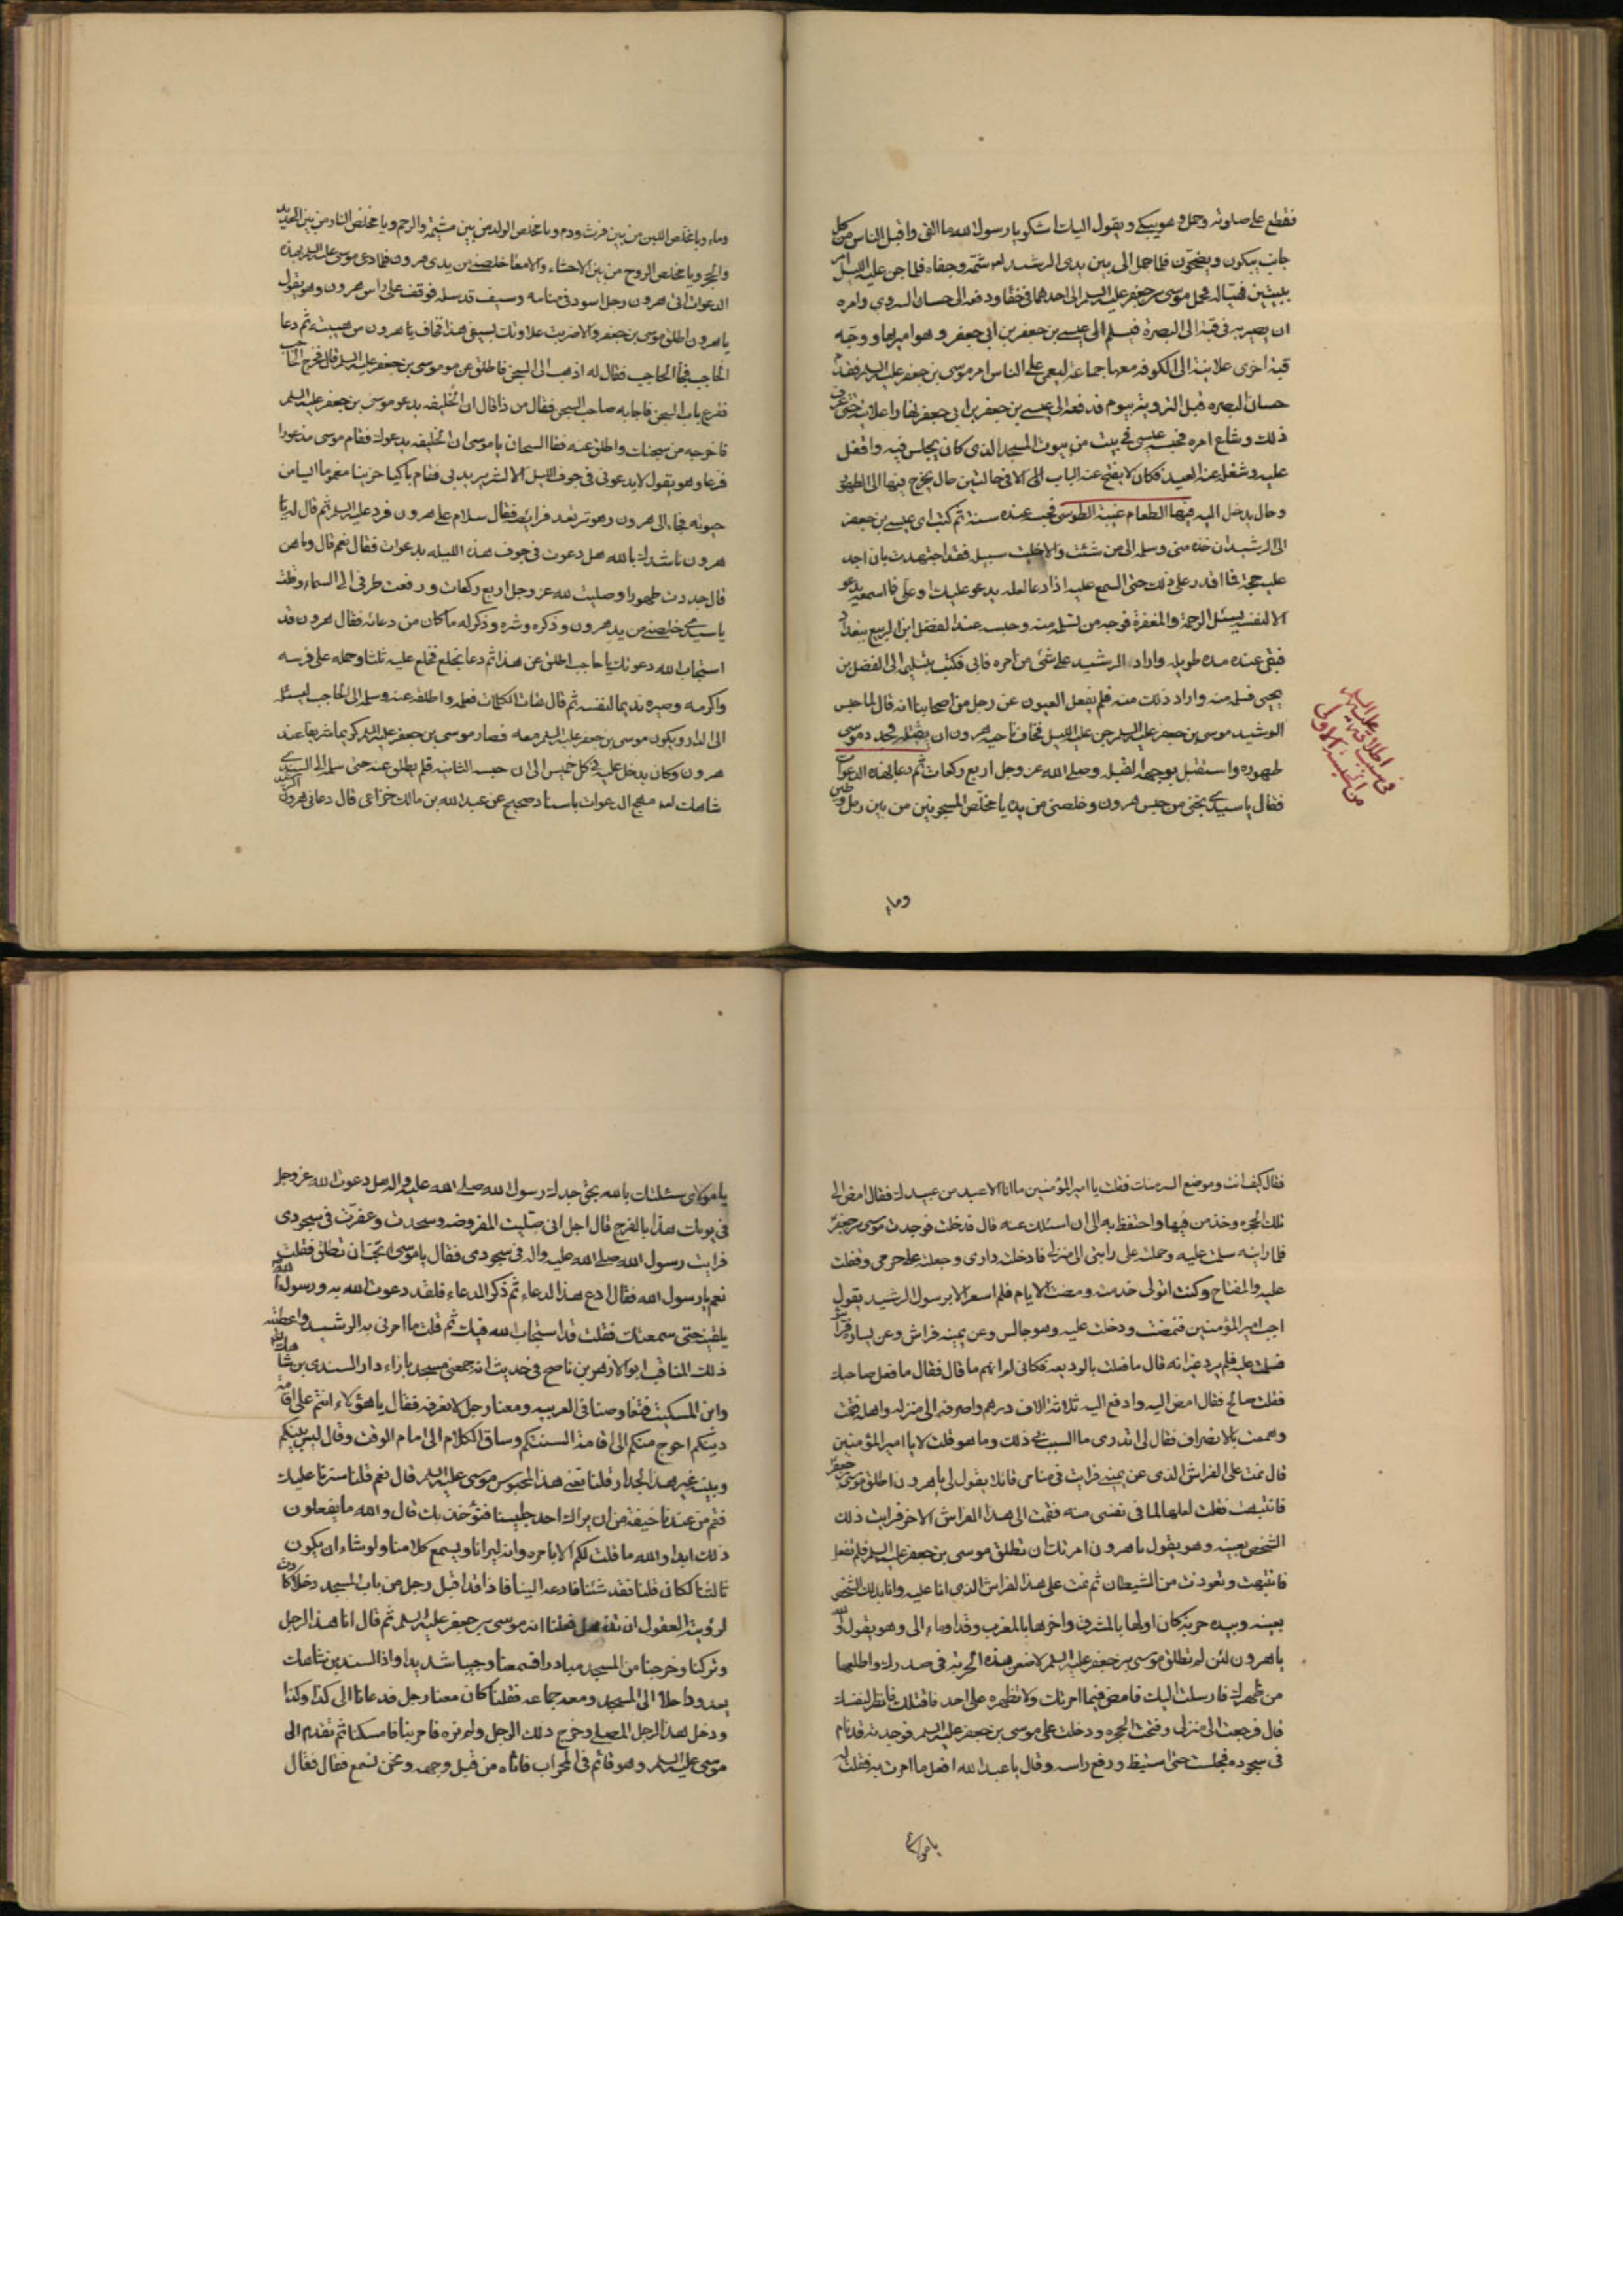 فقطع عليه صلوته وحمل وهو يبكى ويقول اليك اشكو يا رسول الله ما القى واقبل الناس من كل
جانب يبكون ويضجون فلما حمل الى بين يدى الرشيد شتمه وجفاه فلما جن عليه الليل امر
ببيتين فهيئا له فحمل موسى بن جعفر عليه السلم الى احدهما فى خفاء ودفعه الى حسان السروى وامره
ان يصير به فى قبة الى البصرة فيسلم الى عيسى بن جعفر بن ابى جعفر وهو اميرها ووجه
قبة اخرى علانية الى الكوفه معها جماعة ليعمى على الناس امر موسى بن جعفر عليه السلم فقدم
حسان البصره قبل التروية بيوم فدفعه الى عيسى بن جعفر بن ابى جعفر نهارا علانية حتى عرف
ذلك وشاع امره فحبسه عيسى فى بيت من بيوت المسجد الذى كان يجلس فيه واقفل
عليه وشغله عنه العيد فكان لا يفتح عنه الباب الا فى حالتين حال يخرج فيها الى الطهور
وحال يدخل اليه فيها الطعام غيبة الطوسى فحبسه عنده سنة ثم كتب اى عيسى بن جعفر
الى الرشيد ان خذه منى وسلمه الى من شئت والا خليت سبيله فقد اجتهدت بان اجد
عليه حجة فما اقدر على ذلك حتى اسمع عليه اذا دعا لعله يدعو عليك او على فما اسمعه يدعو
الا لنفسه يسئل الرحمة والمغفرة فوجه من تسلمه منه وحبسه عند الفضل ابن الربيع ببغداد
فبقى عنده مده طويله واراده الرشيد على شئ من امره فابى فكتب بتسليمه الى الفضل بن
يحيى فسلمه منه واراد ذلك منه فلم يفعل العيون عن رجل من اصحابنا انه قال لما حبس
الرشيد موسى بن جعفر عليه السلم جن عليه الليل فخاف ناحيه هرون ان يقتله فجدد موسى
طهوره واستقبل بوجهه القبله وصلى لله عز وجل اربع ركعات ثم دعا بهذه الدعوات
فقال يا سيدى نجنى من حبس هرون وخلصنى من يده يا مخلص الشجر من بين رمل وطين
فى سبب اطلاقه عليه السلم
من الحبسة الاولى
وماء
وماء ويا مخلص اللبن من بين فرث ودم ويا مخلص الولد من بين مشيمة والرحم ويا مخلص النار من بين الحديد
والحجر ويا مخلص الروح من بين الاحشاء والامعاء خلصنى من يدى هرون فلما دعى موسى عليه السلم بهذه
الدعوات اتى هرون رجل اسود فى منامه وسيف قد سله فوقف على راس هرون وهو يقول
يا هرون اطلق موسى بن جعفر والا ضربت علاوتك بسيفى هذا فخاف يا هرون من هيبته ثم دعا
الحاجب فجاء الحاجب فقال له اذهب الى السجن فاطلق عن موسى بن جعفر عليه السلم قال فخرج الحاجب
فقرع باب السجن فاجابه صاحب السجن فقال من ذا قال ان الخليفه يدعو موسى بن جعفر عليه السلم
فاخرجه من سجنك واطلق عنه فصاح السجان يا موسى ان الخليفه يدعوك فقام موسى مذعورا
فزعا وهو يقول لا يدعونى فى جوف الليل الا لشر يريد بى فقام باكيا حزينا مغموما ايسا من
حيوته فجاء الى هرون وهو ترتعد فرايصه فقال سلام على هرون فرد عليه السلم ثم قال له يا
هرون ناشدتك بالله هل دعوت فى جوف هذه الليله بدعوات فقال نعم قال وما هن
قال جددت طهورا وصليت لله عز وجل اربع ركعات ورفعت طرفى الى السماء وقلت
يا سيدى خلصنى من يد هرون وذكره وشره وذكر له ما كان من دعائه فقال هرون قد
استجاب الله دعوتك يا حاجب اطلق عن هذا ثم دعا بخلع فخلع عليه ثلثا وحمله على فرسه
واكرمه وصيره نديما لنفسه ثم قال هات الكلمات فعلمه واطلق عنه وسلمه الى الحاجب ليسلمه
الى الدار ويكون موسى بن جعفر عليه السلم معه فصار موسى بن جعفر عليه السلم كريما شريفا عند
هرون وكان يدخل عليه فى كل خميس الى ان حبسه الثانيه فلم يطلق عنه حتى سلمه الى السندى
شاهك لعنه مهج الدعوات باسناد صحيح عن عبد الله بن مالك خزاعى قال دعانى هرون الرشيد
فقال كيف انت وموضع السر منك فقلت يا امير المؤمنين ما انا الا عبد من عبيدك فقال امض الى
تلك الحجره وخذ من فيها واحتفظ به الى ان اسئلك عنه قال فدخلت فوجدت موسى بن جعفر
فلما رايته سلمت عليه وحملته على دابتى الى منزلى فادخلته دارى وجعلته على حرمى وقفلت
عليه والمفتاح وكنت اتولى خدمته ومضت الايام فلم اشعر الا برسول الرشيد يقول
اجب امير المؤمنين فنهضت ودخلت عليه وهو جالس وعن يمينه فراش وعن يساره فراش
فسلمت عليه فلم يرد غير انه قال ما فعلت بالوديعه فكانى لم افهم ما قال فقال ما فعل صاحبك
فقلت صالح فقال امض اليه وادفع اليه ثلاثة الاف درهم واصرفه الى منزله واهله فقمت
وهممت بالانصراف فقال لى اتدرى ما السبب فى ذلك وما هو قلت لا يا امير المؤمنين
قال نمت على الفراش الذى عن يمينى فرايت فى منامى قائلا يقول لى يا هرون اطلق موسى بن جعفر
فانتبهت فقلت لعلها لما فى نفسى منه فقمت الى هذا الفراش الاخر فرايت ذلك
الشخص بعينه وهو يقول يا هرون امرتك ان تطلق موسى بن جعفر عليه السلم فلم تفعل
فانتبهت وتعوذت من الشيطان ثم نمت على هذا الفراش الذى انا عليه واذا بذلك الشخص
بعينه وبيده حربة كان اولها بالمشرق واخرها بالمغرب وقد اوماء الى وهو يقول والله
يا هرون لئن لم تطلق موسى بن جعفر عليه السلم لاضعن هذه الحربة فى صدرك واطلعها
من ظهرك فارسلت اليك فامض فيما امرتك ولا تظهره على احد فاقتلك فانظر لنفسك
قال فرجعت الى منزلى وفتحت الحجره ودخلت على موسى بن جعفر عليه السلم فوجدته قد نام
فى سجوده فجلست حتى استيقظ ورفع راسه وقال يا عبد الله افعل ما امرت به فقلت له
يا مولاى
يا مولاى سئلتك بالله بحق جدك رسول الله صلى الله عليه واله هل دعوت الله عز وجل
فى يومك هذا بالفرج قال اجل انى صليت المفروضه وسجدت وعفرت فى سجودى
فرايت رسول الله صلى الله عليه واله فى سجودى فقال يا موسى اتحب ان تطلق فقلت
نعم يا رسول الله فقال ادع بهذا الدعاء ثم ذكر الدعاء فلقد دعوت الله به ورسول الله
يلقنيه حتى سمعتك فقلت قد استجاب الله فيك ثم قلت ما امرنى به الرشيد واعطيته
ذلك المناقب ابو الازهر بن ناصح فى حديث انه جمعنى مسجد بازاء دار السندى بن شاهك
وابن السكيت فتفاوضنا فى العربيه ومعنا رجل لا نعرفه فقال يا هؤلاء انتم على اقامة
دينكم احوج منكم الى اقامة السنتكم وساق الكلام الى امام الوقت وقال ليس بينكم
وبينه غير هذا الجدار قلنا تعنى هذا المحبوس موسى عليه السلم قال نعم قلنا سترنا عليك
فقم من عندنا خيفة من ان يراك احد جليسنا فنؤخذ بك قال والله ما يفعلون
ذلك ابدا والله ما قلت لكم الا بامره وانه ليرانا ويسمع كلامنا ولو شاء ان يكون
ثالثنا لكان قلنا فقد شئنا فادعه الينا فاذا قد اقبل رجل من باب المسجد دخلا كادت
لرؤيته العقول ان تذهل فعلمنا انه موسى بن جعفر عليه السلم ثم قال انا هذا الرجل
وتركنا وخرجنا من المسجد مبادرا فسمعنا وجيبا شديدا واذا السندى بن شاهك
يعدو داخلا الى المسجد ومعه جماعه فقلنا كان معنا رجل فدعانا الى كذا وكذا
ودخل هذا الرجل المصلى وخرج ذلك الرجل ولم نره فامر بنا فامسكنا ثم تقدم الى
موسى عليه السلم وهو قائم فى المحراب فاتاه من قبل وجهه ونحن نسمع فقال فقال